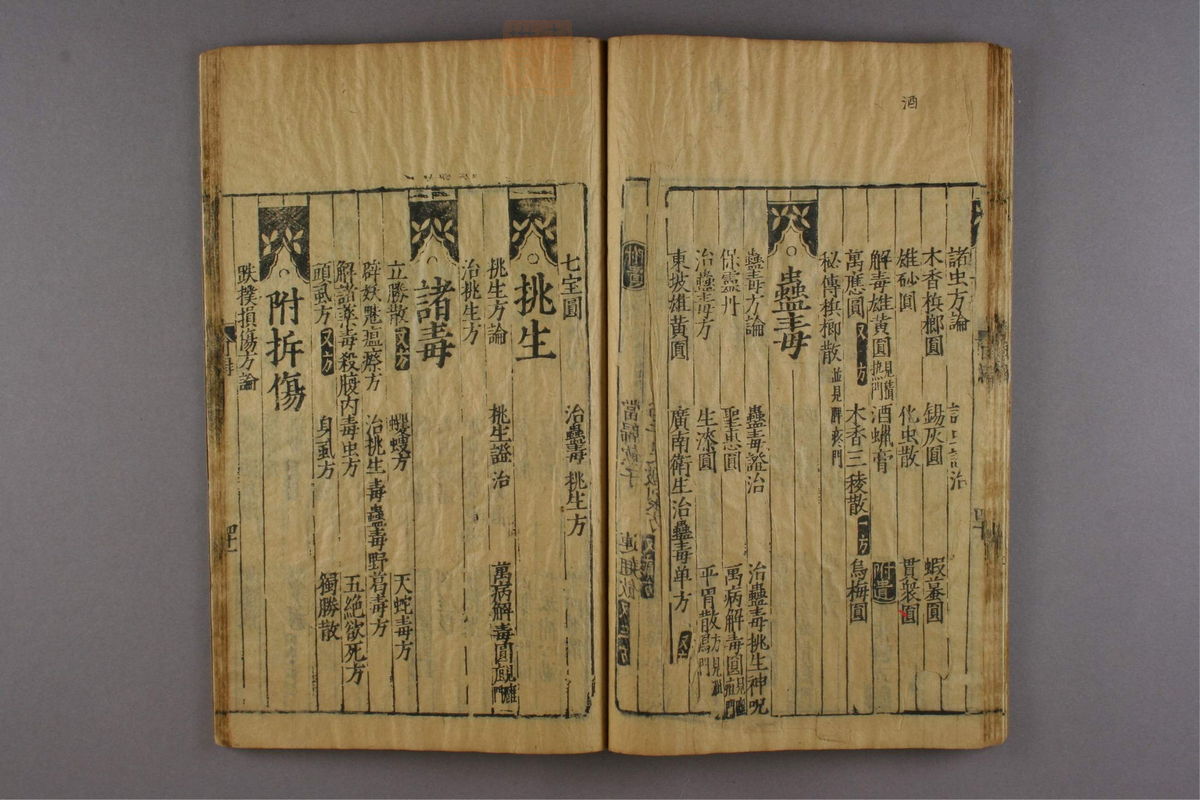 酒
諸虫方論 治
木香檳榔圓 錫灰圓 蝦蟇圓
雄砂圓 化虫散 貫衆圓
解毒雄黃圓 見積热門 酒蠟膏 附遺
萬應圓 又一方 木香三稜散 一方 烏梅圓
秘傳檳榔散 並見脾疼門
蠱毒
蠱毒方論 蠱毒證治 治蠱毒挑生神呪
保靈丹 聖惠圓 萬病解毒圓
治蠱毒方 生漆圓 平胃散
東坡雄黃圓 廣南衛生治蠱毒单方
附遺
七宝圓 治蠱毒 挑生方
挑生
挑生方論 挑生證治 萬病解毒圓
治挑生方
諸毒
立勝散 又方 蠼螋方 天蛇毒方
辟妖魅瘟瘵方 治挑生毒蠱毒野葛毒方
解諸藥毒殺腹内毒虫方 五絶欲死方
頭虱方 又方 身虱方 獨勝散
附折傷
跌撲損傷方論